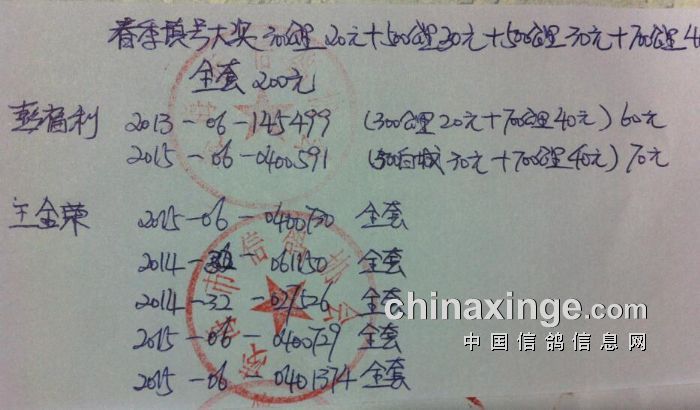 春季填号大奖 300公里20元+500公里30元+500公里30元+700公里4
全套200元
彭育利 2013-06-145499 (300公里20元+700公里40元)60元
2015-06-0400591 (500白城30元+700公里40元)70元
王金荣 2015-06-0400730 全套
2014-32-061150 全套
2014-32-027526 全套
2015-06-0400729 全套
2015-06-0401374 全套
市信鸽协会
chinaxinge.com
中国信鸽信息网